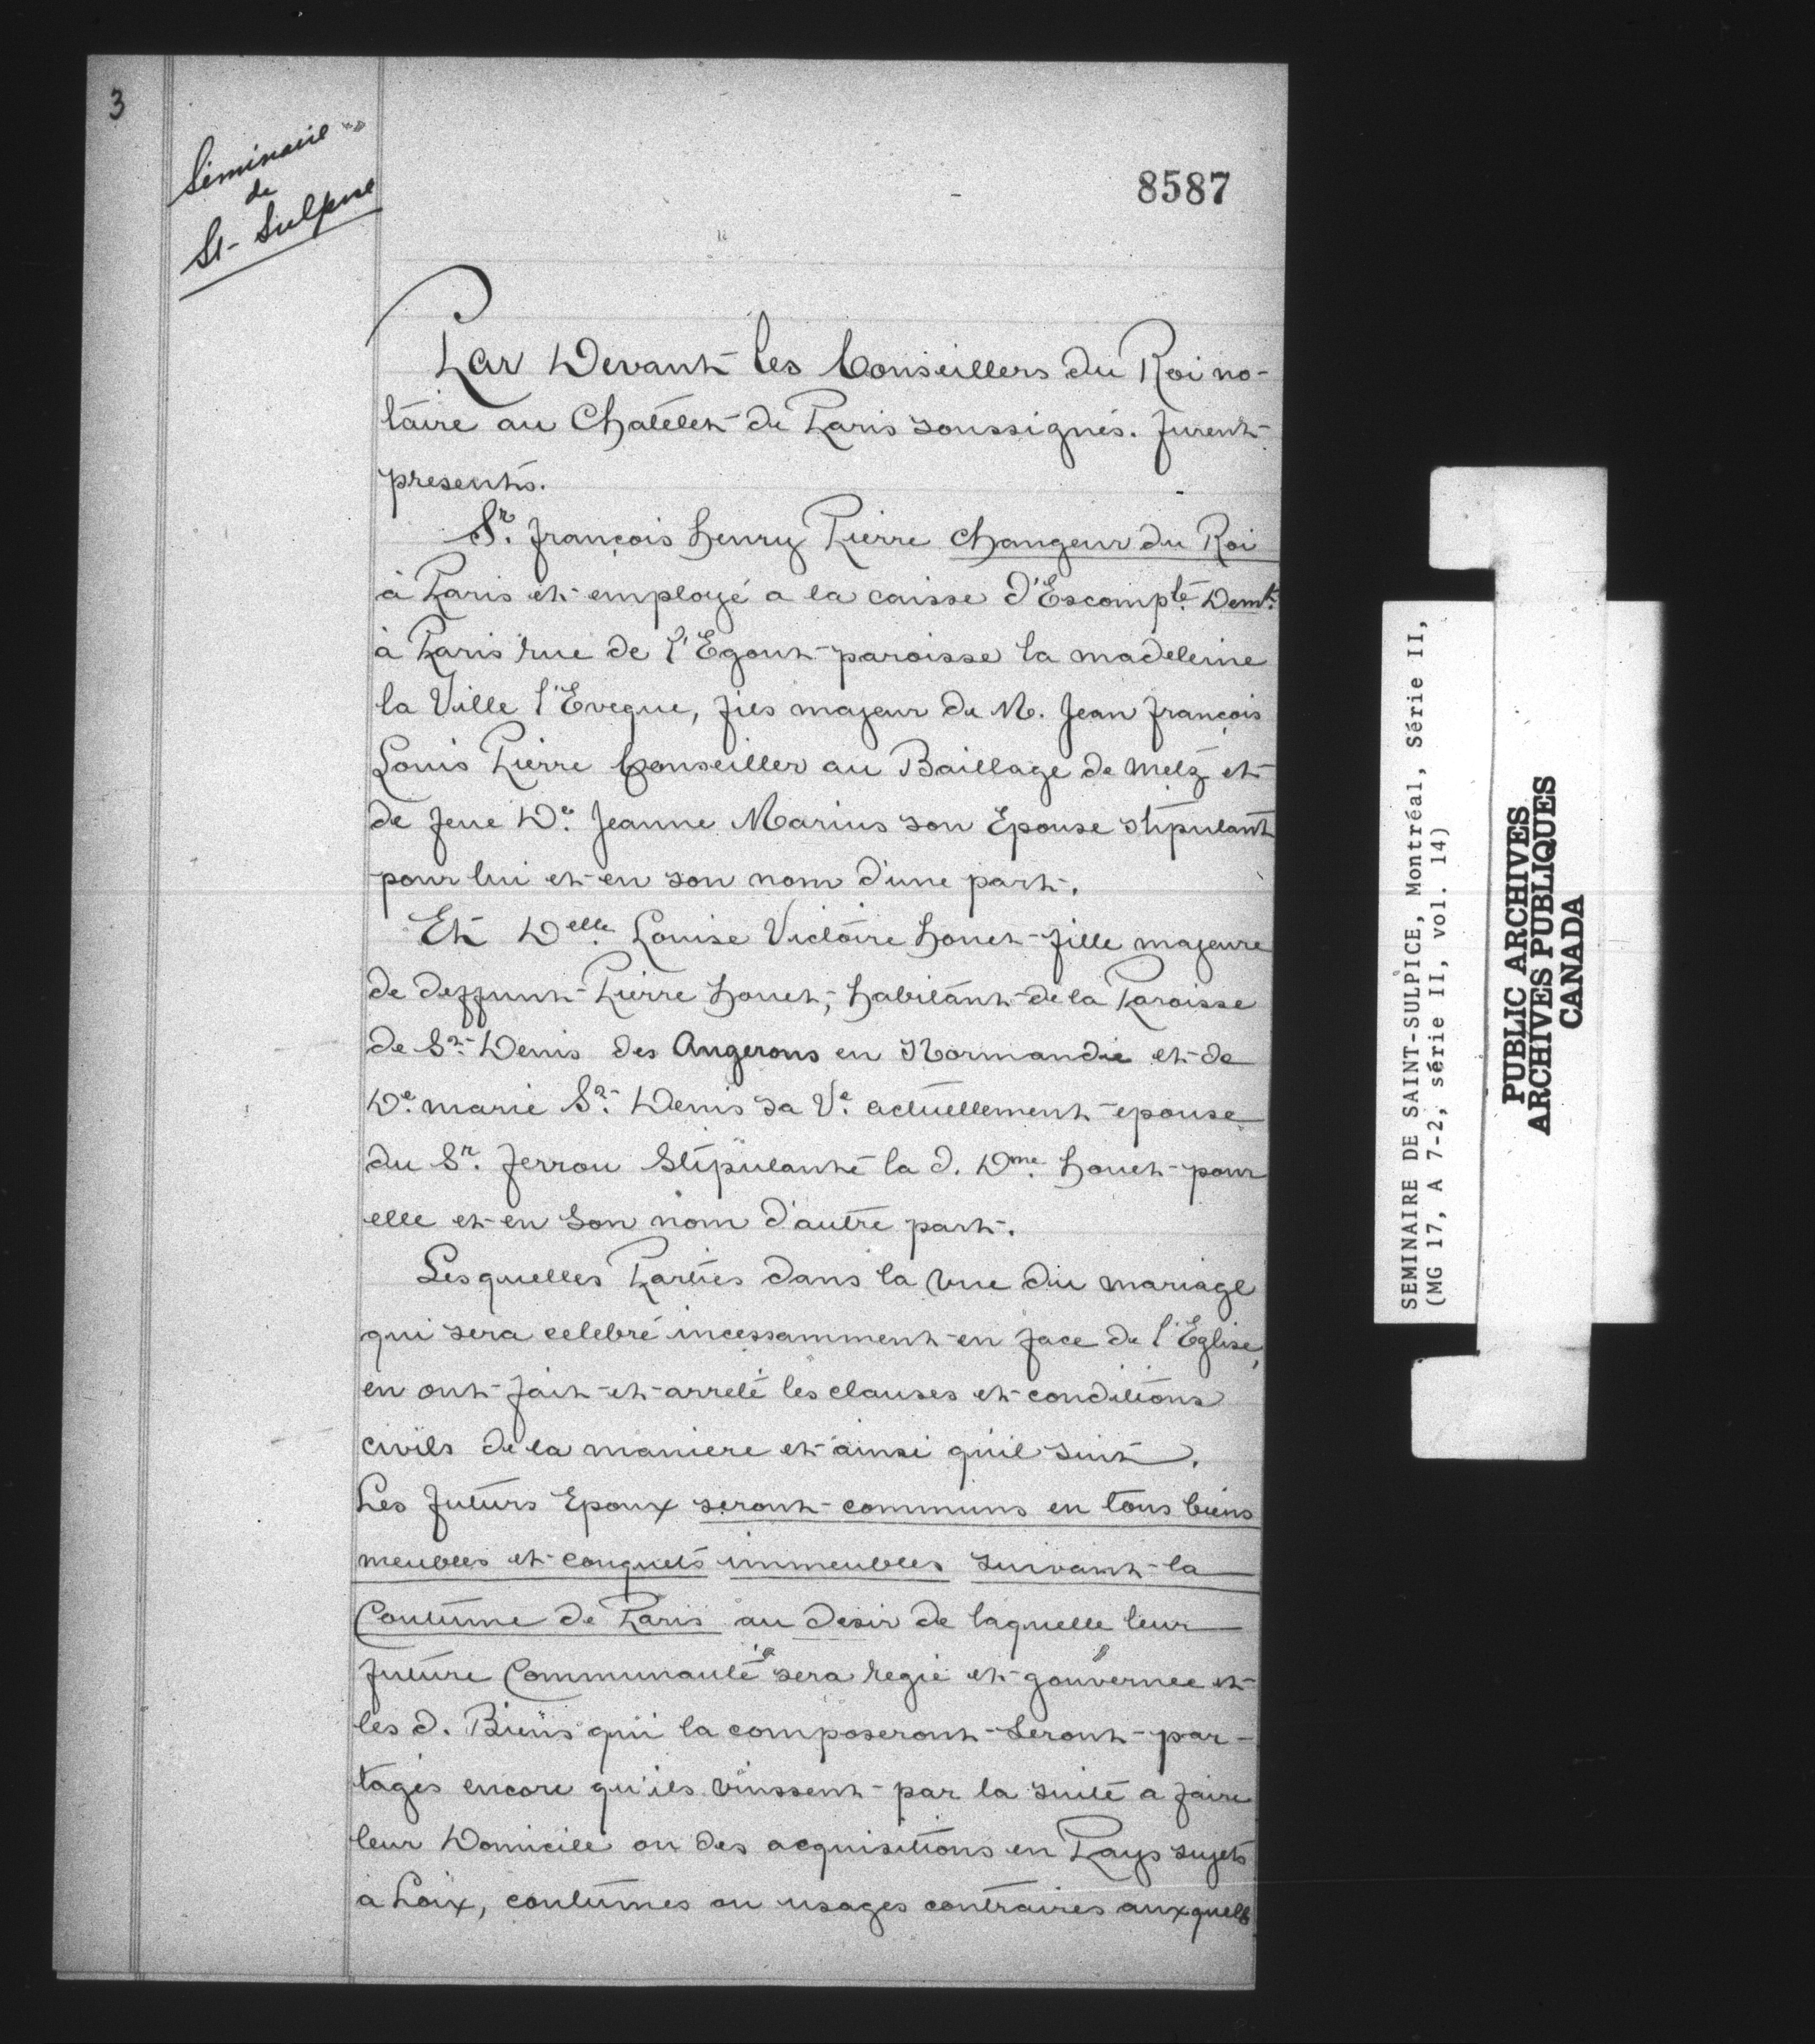 3
Séminaire
de
St-Sulpice
8587
Par Devant les Conseillers du Roi no-
taire au Chatelet de Paris soussignés. furent
presents.
Sr. françois henry Pierre changeur du Roi
à Paris et employé a la caisse d'Escompte. Demt.
à Paris rue de l'Egout paroisse la madeleine
la Ville l'Eveque, fils majeur de M. Jean françois
Louis Pierre Conseiller au Baillage de Metz et
de feue De. Jeanne Marius son Epouse stipulant
pour lui et en son nom d'une part.
Et Delle. Louise Victoire houet fille majeure
de deffunt Pierre houet, habitant de la Paroisse
de St. Denis des Angerons en Normandie et de
De. marie St. Denis sa Ve. actuellement epouse
du Sr. ferrou Stipulante la d. Dme. houet pour
elle et en son nom d'autre part.
Lesquelles Parties dans la vue du mariage
qui sera celebré incessamment en face de l'Eglise,
en ont fait et arreté les clauses et conditions
civils de la maniere et ainsi qu'il suit.
Les futurs Epoux seront communs en tous biens
meubles et conquets immeubles suivant la
Coutume de Paris au desir de laquelle leur
future Communauté sera regie et gouvernee et
les d. Biens qui la composeront seront par-
tagés encore qu'ils vinssent par la suite a faire
leur Domicile ou des acquisitions en Pays sujets
a Loix, coutumes ou usages contraires auxquels
SEMINAIRE DE SAINT-SULPICE, Montréal, Série II,
(MG 17, A 7-2, série II, vol. 14)
PUBLIC ARCHIVES
ARCHIVES PUBLIQUES
CANADA